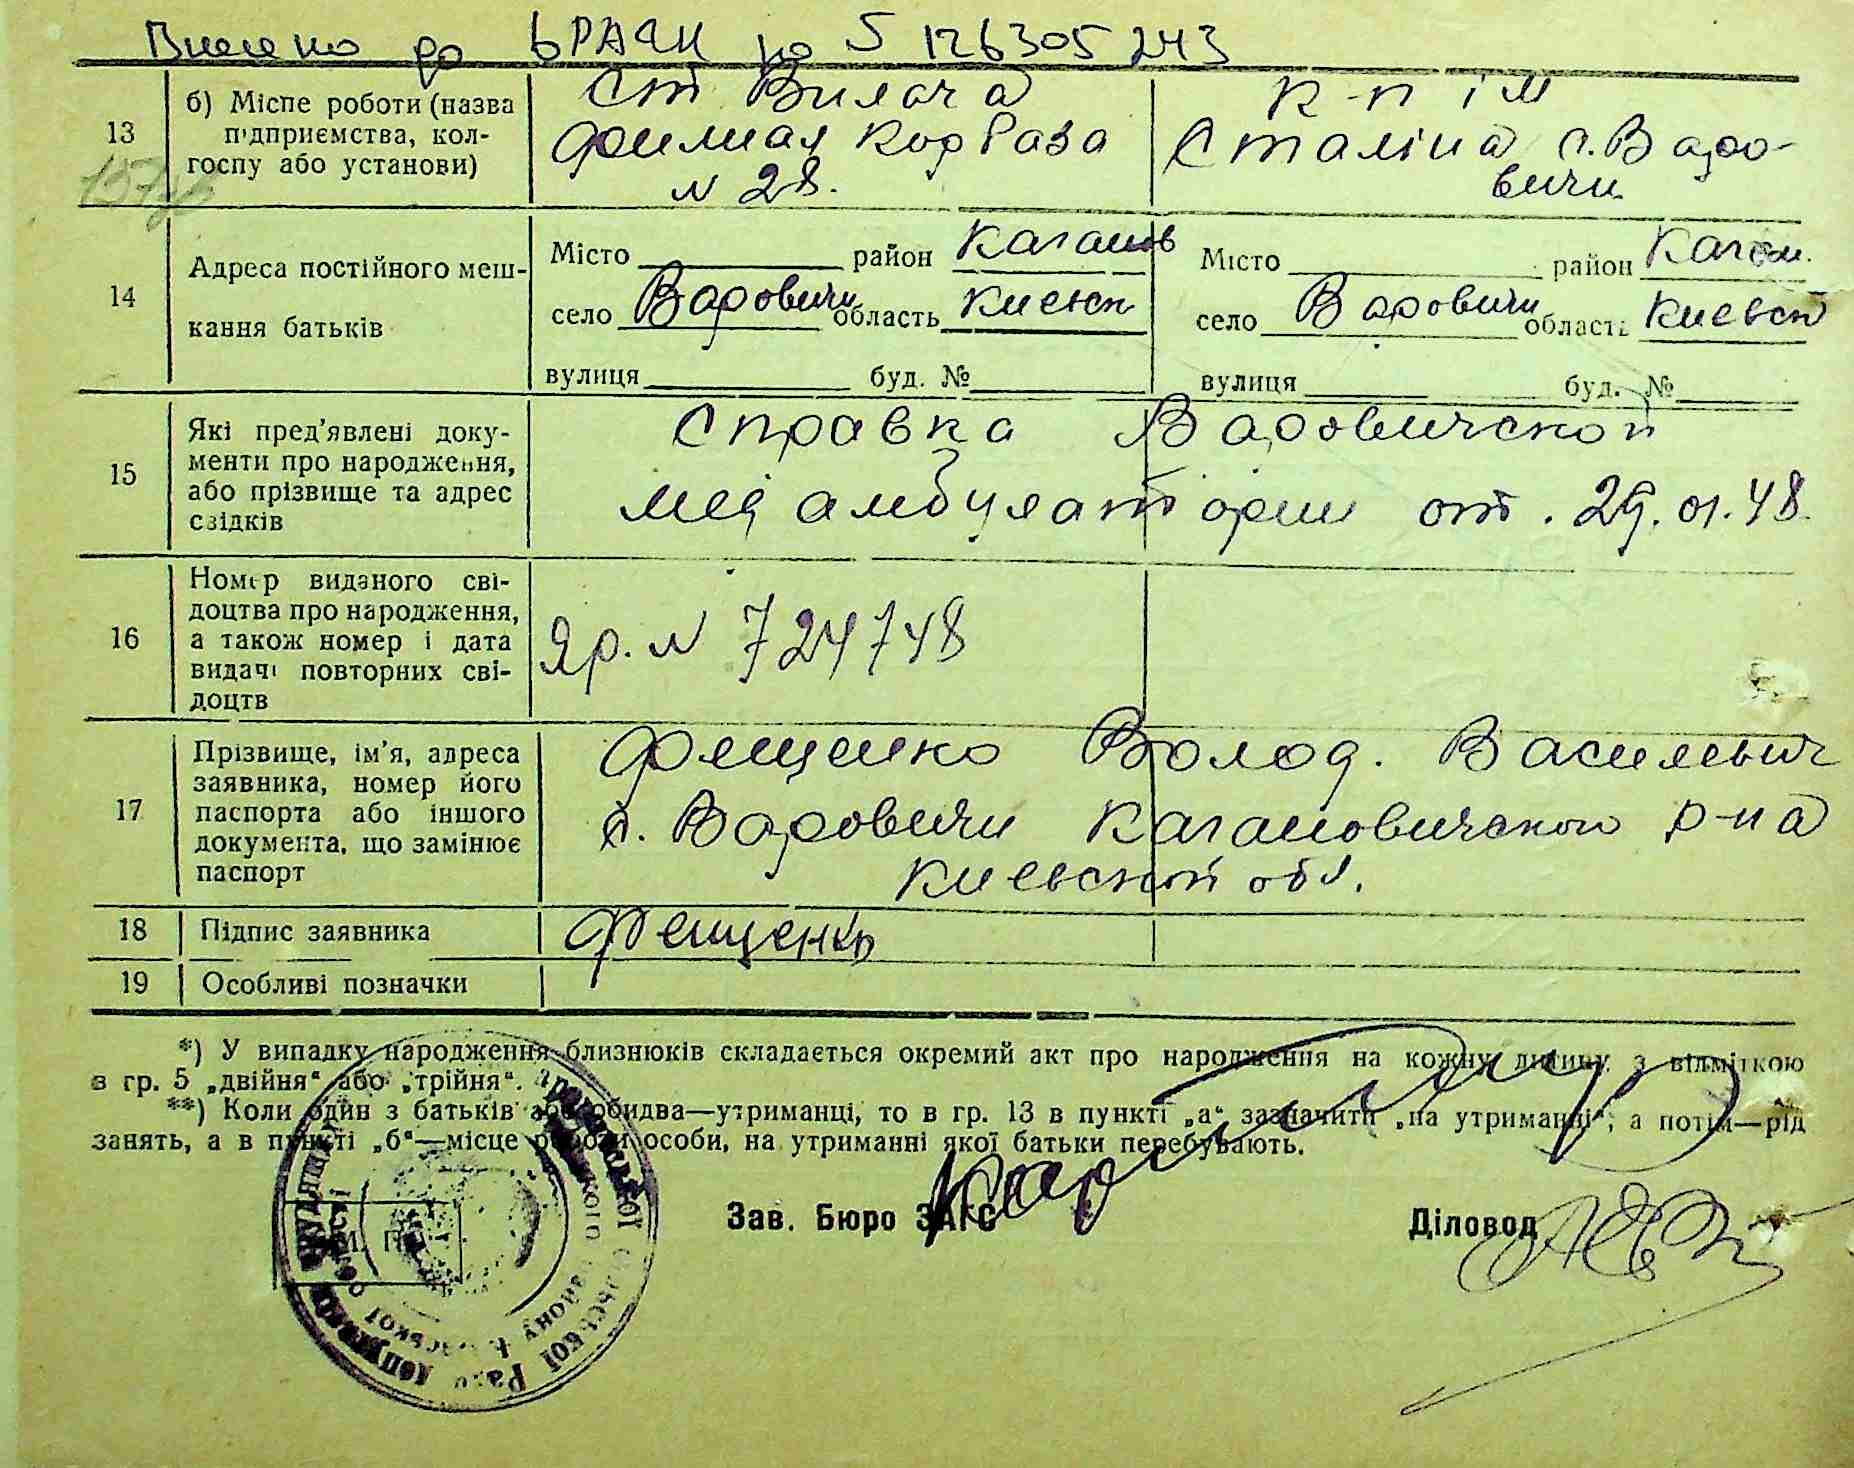 Внесено до ЬРАЦН № 5 126305243
13 б) Місце роботи (назва підприємства, колгоспу або установи)
ст Вилача
филиал Кордваза
№ 28.
к-п ім
Сталіна с. Варовичи
14 Адреса постійного мешкання батьків
Місто район Каганов
село Варовичи область Киевск
вулиця буд. №
Місто район Каган.
село Варовичи область Киевск
вулиця буд. №
15 Які пред'явлені документи про народження, або прізвище та адрес свідків
Справка Варовичской
мед амбулатории от. 29.01.48.
16 Номер виданого свідоцтва про народження, а також номер і дата видачі повторних свідоцтв
Яр. № 724748
17 Прізвище, ім'я, адреса заявника, номер його паспорта або іншого документа, що замінює паспорт
Фещенко Волод. Васильевич
с. Варовичи Кагановичского р-на
Киевской обл.
18 Підпис заявника
Фещенко
19 Особливі позначки
*) У випадку народження близнюків складається окремий акт про народження на кожну дитину з відміткою
в гр. 5 „двійня“ або „трійня“.
**) Коли один з батьків або обидва—утриманці, то в гр. 13 в пункті „а“ зазначити „на утриманні“, а потім—рід
занять, а в пункті „б“—місце роботи особи, на утриманні якої батьки перебувають.
М. П.
Зав. Бюро ЗАГС
Діловод